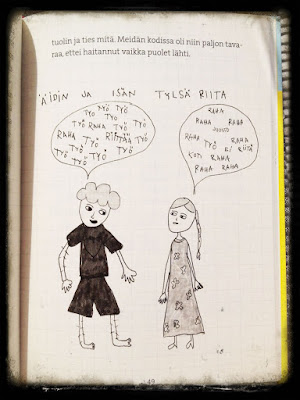 tuolin ja ties mitä. Meidän kodissa oli niin paljon tava-
raa, ettei haitannut vaikka puolet lähti.
ÄIDIN JA ISÄN TYLSÄ RIITA
TYÖ TYÖ TYÖ
TYÖ TYÖ TYÖ
TYÖ RAHA TYÖ TYÖ
RAHA TYÖ RIITAA TYÖ
TYÖ TYÖ TYÖ
TYÖ TYÖ TYÖ
TYÖ TYÖ
RAHA
RAHA RAHA
RAHA RAHA
TYÖ EI
KOTI RAHA
RAHA RAHA
49